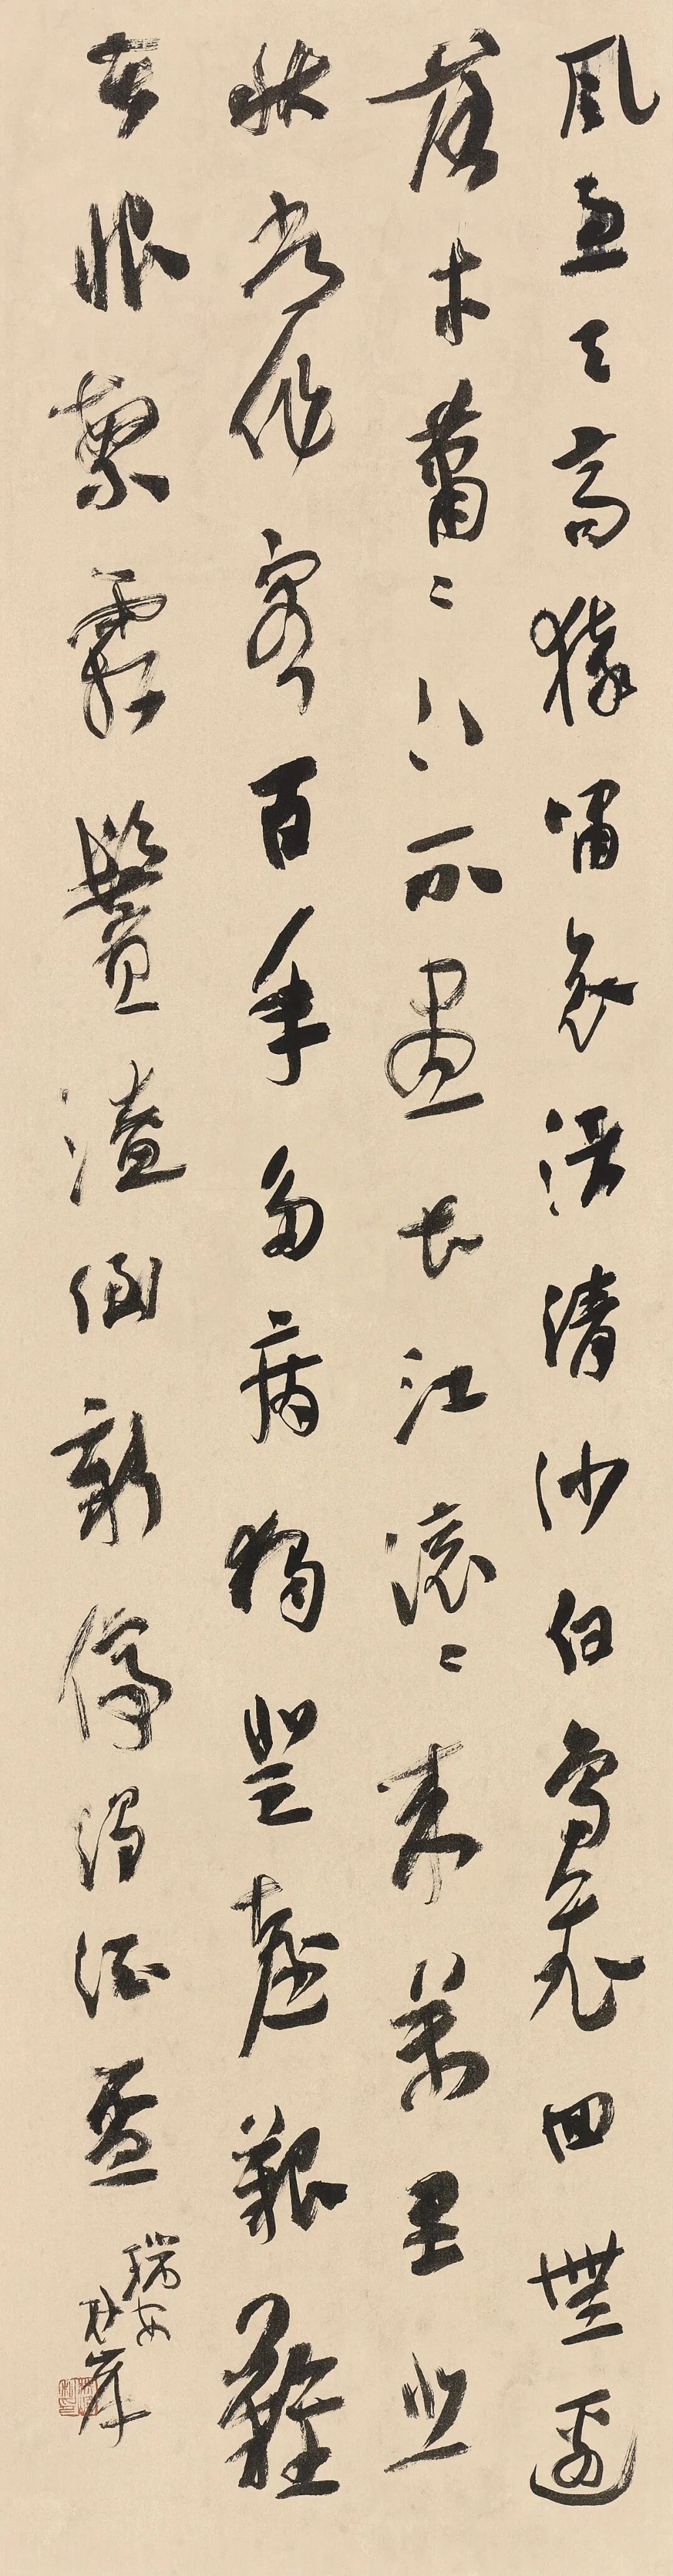 風急天高猿嘯哀渚清沙白鳥飛回無邊
落木蕭〻下不盡長江滾〻来萬里悲
秋常作客百年多病獨登臺艱難
苦恨繁霜鬢潦倒新停濁酒盃
瑞安